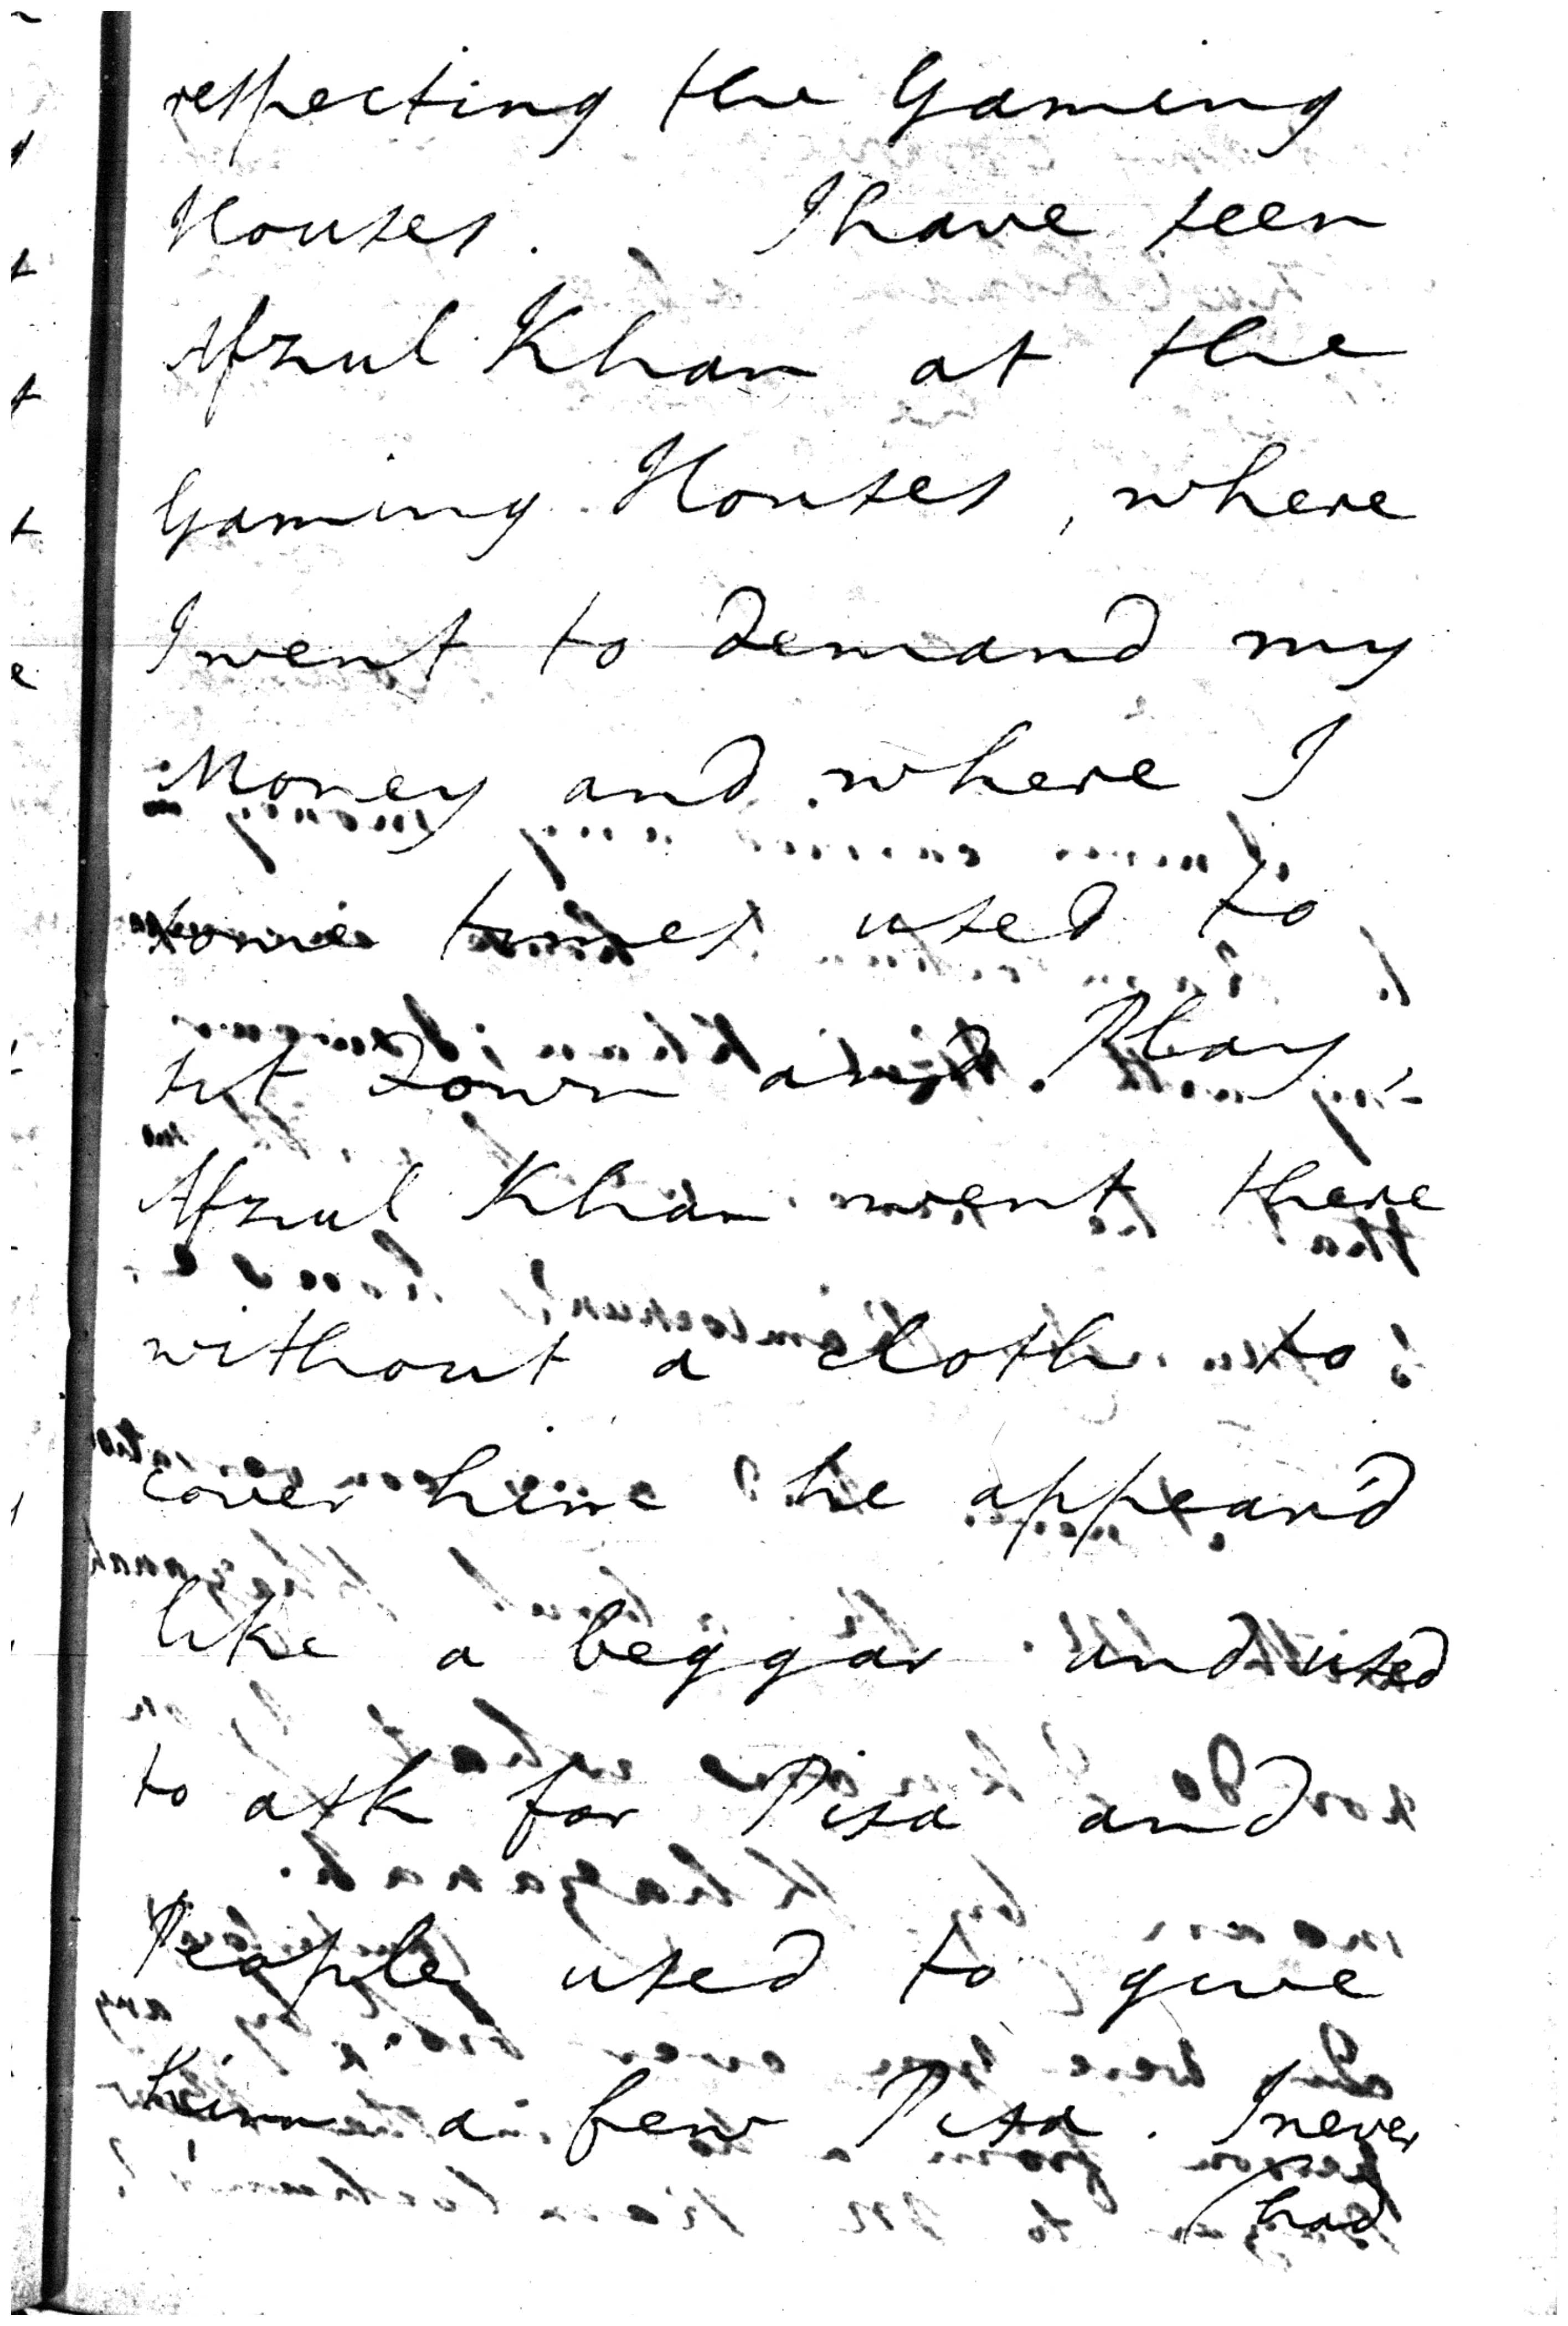 respecting the Gaming
Houses. I have seen
Afzul Khan at the
Gaming Houses, where
I went to demand my
Money and where I
some times used to
sit down and Play -
Afzul Khan went there
without a cloth to
cover him he appear'd
like a beggar and used
to ask for Pisa and
People used to give
him a few Pisa. I never
had